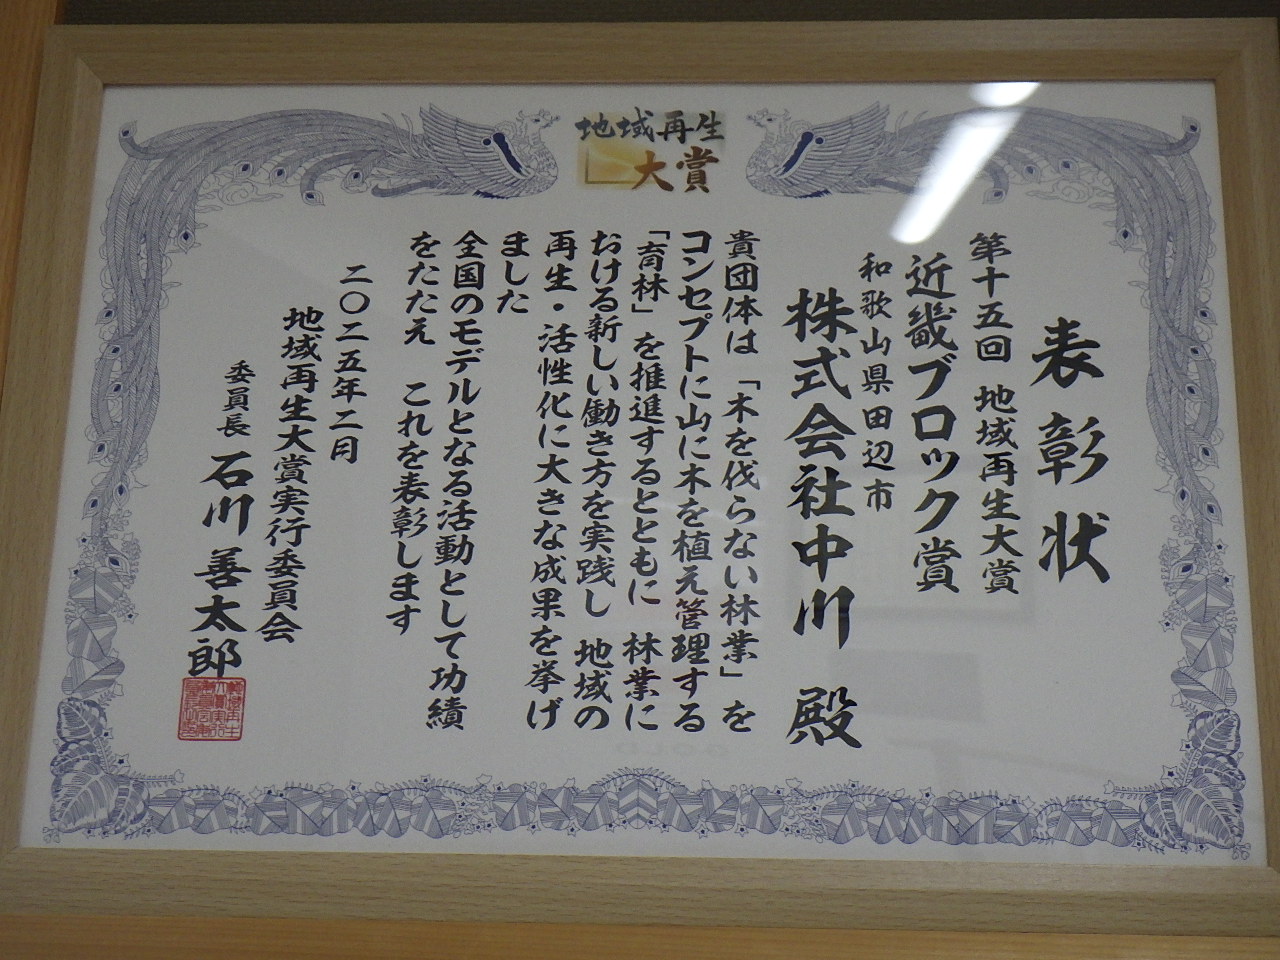 地域再生
大賞
表彰状
第十五回 地域再生大賞
近畿ブロック賞
和歌山県田辺市
株式会社中川 殿
貴団体は「木を伐らない林業」を
コンセプトに山に木を植え管理する
「育林」を推進するとともに 林業に
おける新しい働き方を実践し 地域の
再生・活性化に大きな成果を挙げ
ました
全国のモデルとなる活動として功績
をたたえ これを表彰します
二〇二五年二月
地域再生大賞実行委員会
委員長 石川 善太郎